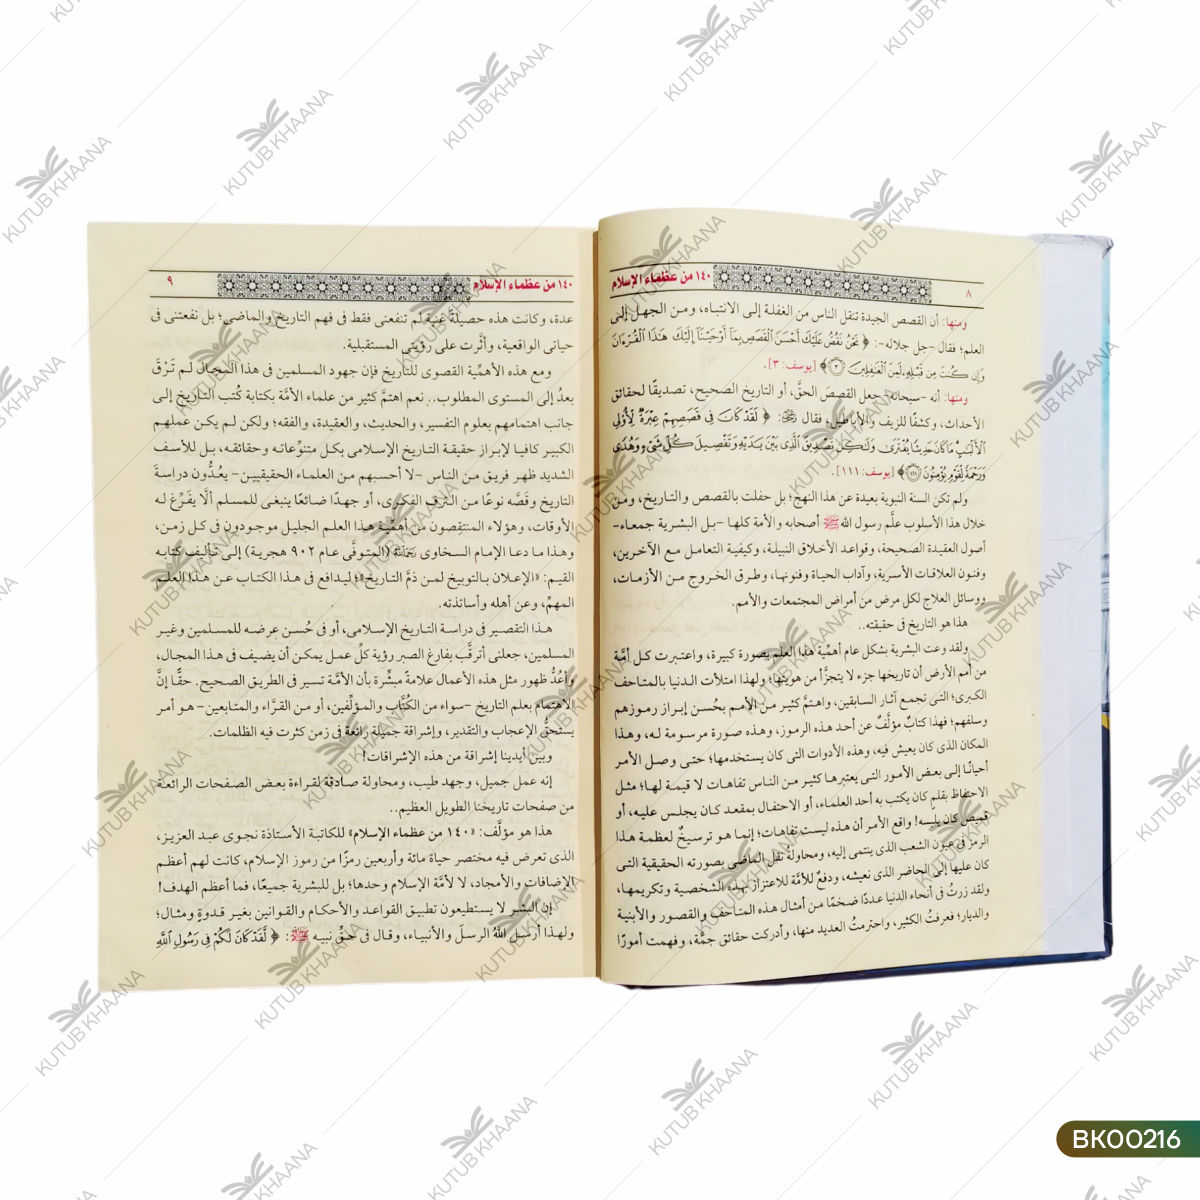 ٨
١٤٠ من عظماء الإسلام
ومنها: أن القصص الجيدة تنقل الناس من الغفلة إلى الانتباه، ومن الجهل إلى
العلم؛ فقال -جل جلاله-: ﴿ نَحْنُ نَقُصُّ عَلَيْكَ أَحْسَنَ ٱلْقَصَصِ بِمَآ أَوْحَيْنَآ إِلَيْكَ هَٰذَا ٱلْقُرْءَانَ
وَإِن كُنتَ مِن قَبْلِهِۦ لَمِنَ ٱلْغَٰفِلِينَ ٣﴾ [يوسف: ٣].
ومنها: أنه -سبحانه- جعل القصص الحقَّ، أو التاريخ الصحيح، تصديقًا لحقائق
الأحداث، وكشفًا للزيف والأباطيل؛ فقال ﷻ: ﴿ لَقَدْ كَانَ فِى قَصَصِهِمْ عِبْرَةٌ لِّأُو۟لِى
ٱلْأَلْبَٰبِ مَا كَانَ حَدِيثًا يُفْتَرَىٰ وَلَٰكِن تَصْدِيقَ ٱلَّذِى بَيْنَ يَدَيْهِ وَتَفْصِيلَ كُلِّ شَىْءٍ وَهُدًى
وَرَحْمَةً لِّقَوْمٍ يُؤْمِنُونَ ١١١﴾ [يوسف: ١١١].
ولم تكن السنة النبوية بعيدة عن هذا النهج؛ بل حفلت بالقصص والتاريخ، ومن
خلال هذا الأسلوب علَّم رسول الله ﷺ أصحابه والأمة كلها -بل البشرية جمعاء-
أصول العقيدة الصحيحة، وقواعد الأخلاق النبيلة، وكيفية التعامل مع الآخرين،
وفنون العلاقات الأسرية، وآداب الحياة وفنونها، وطرق الخروج من الأزمات،
ووسائل العلاج لكل مرض من أمراض المجتمعات والأمم.
هذا هو التاريخ فى حقيقته..
ولقد وعت البشرية بشكل عام أهمِّية هذا العلم بصورة كبيرة، واعتبرت كل أمَّة
من أمم الأرض أن تاريخها جزء لا يتجزَّأ من هويتها؛ ولهذا امتلأت الدنيا بالمتاحف
الكبرى؛ التى تجمع آثار السابقين، واهتمَّ كثير من الأمم بحُسن إبراز رموزهم
وسلفهم؛ فهذا كتابٌ مؤلَّفٌ عن أحد هذه الرموز، وهذه صورة مرسومة له، وهذا
المكان الذى كان يعيش فيه، وهذه الأدوات التى كان يستخدمها؛ حتى وصل الأمر
أحيانًا إلى بعض الأمور التى يعتبرها كثير من الناس تفاهات لا قيمة لها؛ مثل
الاحتفاظ بقلم كان يكتب به أحد العلماء، أو الاحتفال بمقعد كان يجلس عليه، أو
قميص كان يلبسه! واقع الأمر أن هذه ليست تفاهات؛ إنما هو ترسيخٌ لعظمة هذا
الرمز فى عيون الشعب الذى ينتمى إليه، ومحاولة نقل الماضى بصورته الحقيقية التى
كان عليها إلى الحاضر الذى نعيشه، ودفعٌ للأمَّة للاعتزاز بهذه الشخصية وتكريمها،
ولقد زرتُ فى أنحاء الدنيا عددًا ضخمًا من أمثال هذه المتاحف والقصور والأبنية
والديار؛ فعرفتُ الكثير، واحترمتُ العديد منها، وأدركت حقائق جمَّة، وفهمت أمورًا
١٤٠ من عظماء الإسلام
٩
عدة، وكانت هذه حصيلةً غنية لم تنفعنى فقط فى فهم التاريخ والماضى؛ بل نفعتنى فى
حياتى الواقعية، وأثَّرت على رؤيتى المستقبلية.
ومع هذه الأهمِّية القصوى للتاريخ فإن جهود المسلمين فى هذا المجال لم تَرْقَ
بعدُ إلى المستوى المطلوب.. نعم اهتمَّ كثير من علماء الأمَّة بكتابة كُتب التاريخ إلى
جانب اهتمامهم بعلوم التفسير، والحديث، والعقيدة، والفقه؛ ولكن لم يكن عملهم
الكبير كافيا لإبراز حقيقة التاريخ الإسلامى بكل متنوِّعاته وحقائقه، بل للأسف
الشديد ظهر فريق من الناس -لا أحسبهم من العلماء الحقيقيين- يعُدُّون دراسةَ
التاريخ وقصَّه نوعًا من الترف الفكرى، أو جهدًا ضائعًا ينبغى للمسلم ألَّا يفَرِّغ له
الأوقات، وهؤلاء المنتقِصون من أهمِّية هذا العلم الجليل موجودون فى كل زمن،
وهذا ما دعا الإمام السخاوى رَحِمَهُ اللهُ (المتوفَّى عام ٩٠٢ هجرية) إلى تأليف كتابه
القيم: «الإعلان بالتوبيخ لمن ذمَّ التاريخ»؛ ليدافع فى هذا الكتاب عن هذا العلم
المهمِّ، وعن أهله وأساتذته.
هذا التقصير فى دراسة التاريخ الإسلامى، أو فى حُسن عرضه للمسلمين وغير
المسلمين، جعلنى أترقَّب بفارغ الصبر رؤية كلِّ عمل يمكن أن يضيف فى هذا المجال،
وأعُدُّ ظهور مثل هذه الأعمال علامةً مبشِّرة بأن الأمَّة تسير فى الطريق الصحيح. حقًّا إنَّ
الاهتمام بعلم التاريخ -سواء من الكُتَّاب والمؤلِّفين، أو من القرَّاء والمتابعين- هو أمر
يستحقُّ الإعجاب والتقدير، وإشراقة جميلة رائعة فى زمن كثرت فيه الظلمات.
وبين أيدينا إشراقة من هذه الإشراقات!
إنه عمل جميل، وجهد طيب، ومحاولة صادقة لقراءة بعض الصفحات الرائعة
من صفحات تاريخنا الطويل العظيم..
هذا هو مؤلَّف: «١٤٠ من عظماء الإسلام» للكاتبة الأستاذة نجوى عبد العزيز،
الذى تعرض فيه مختصر حياة مائة وأربعين رمزًا من رموز الإسلام، كانت لهم أعظم
الإضافات والأمجاد، لا لأمَّة الإسلام وحدها؛ بل للبشرية جميعًا، فما أعظم الهدف!
إن البشر لا يستطيعون تطبيق القواعد والأحكام والقوانين بغير قدوةٍ ومثال؛
ولهذا أرسل اللهُ الرسلَ والأنبياء، وقال فى حقِّ نبيه ﷺ: ﴿ لَّقَدْ كَانَ لَكُمْ فِى رَسُولِ ٱللَّهِ
KUTUB KHAANA
BK00216